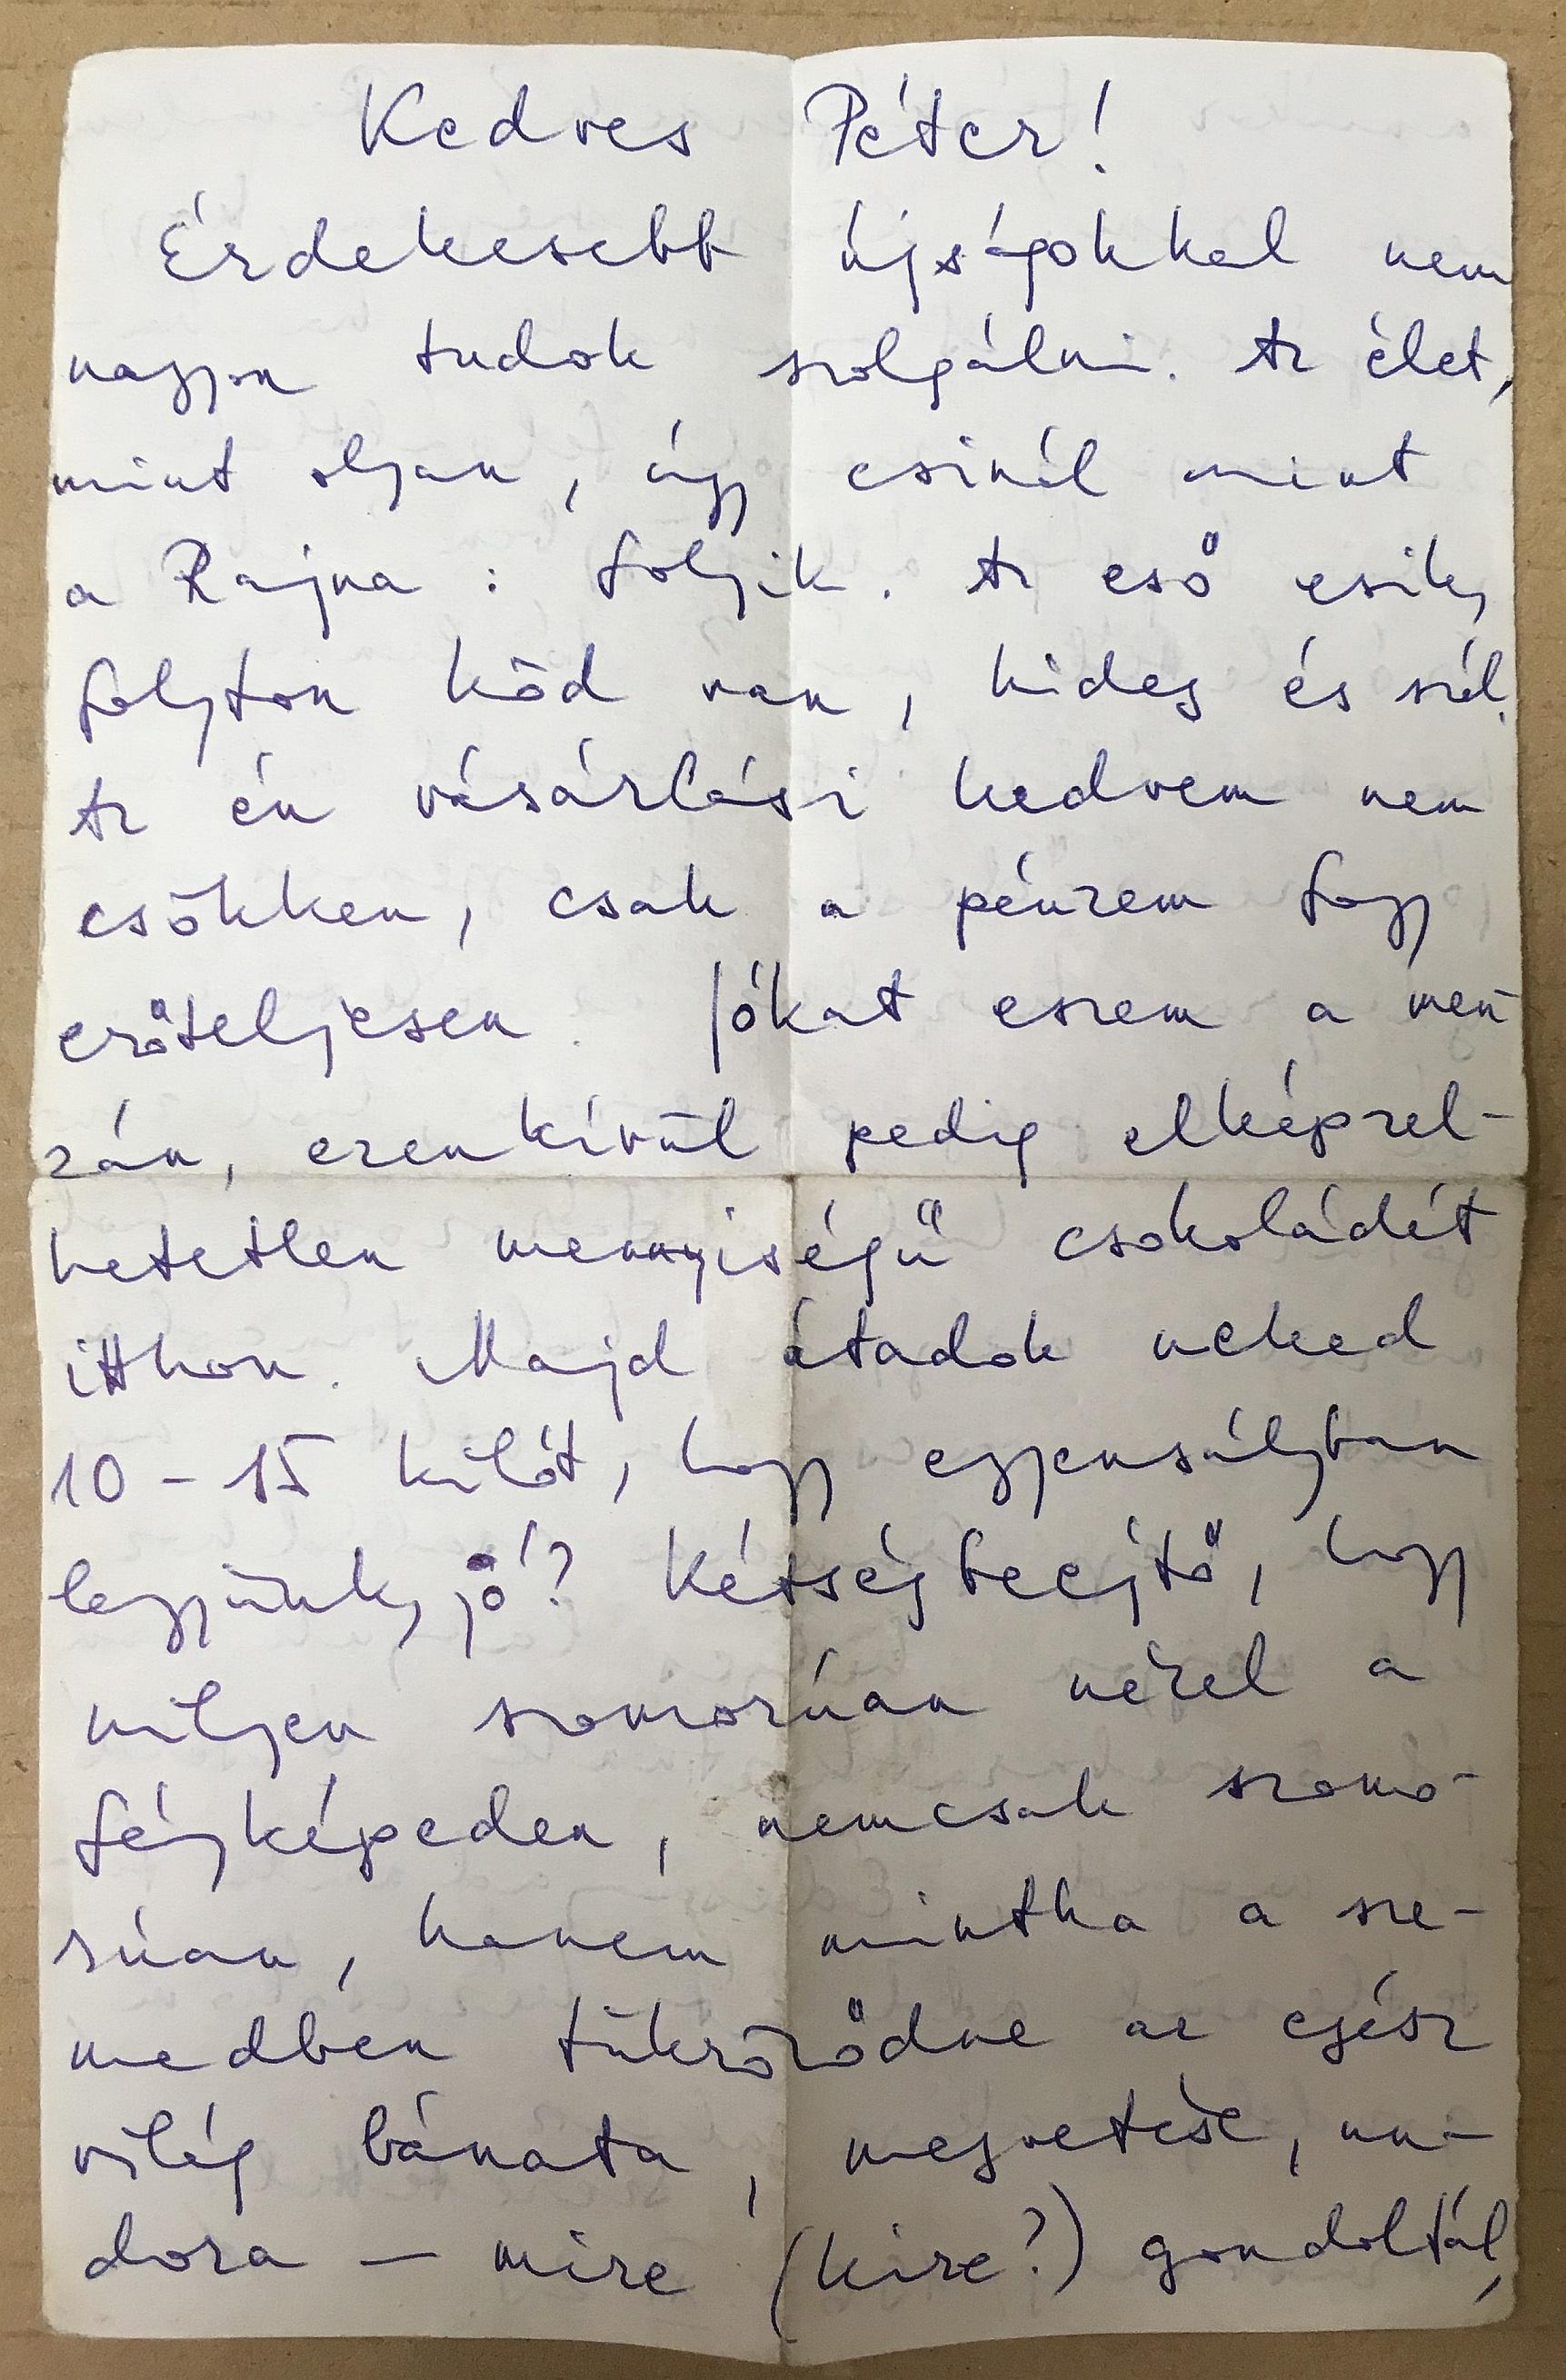 Kedves Péter!
Érdekesebb újságokkal nem
nagyon tudok szolgálni. Az élet,
mint olyan, úgy csinál mint
a Rajna: folyik. Az eső esik,
folyton köd van, hideg és szél.
Az én vásárlási kedvem nem
csökken, csak a pénzem fogy
erőteljesen. Jókat eszem a men-
zán, ezenkívül pedig elképzel-
hetetlen mennyiségű csokoládét
itthon. Majd átadok neked
10-15 kilót, hogy egyensúlyban
legyünk, jó? Kétségbeejtő, hogy
milyen szomorúan nézel a
fényképeden, nemcsak szomo-
rúan, hanem mintha a sze-
medben tükröződne az egész
világ bánata, megvetése, un-
dora — mire (kire?) gondoltál,